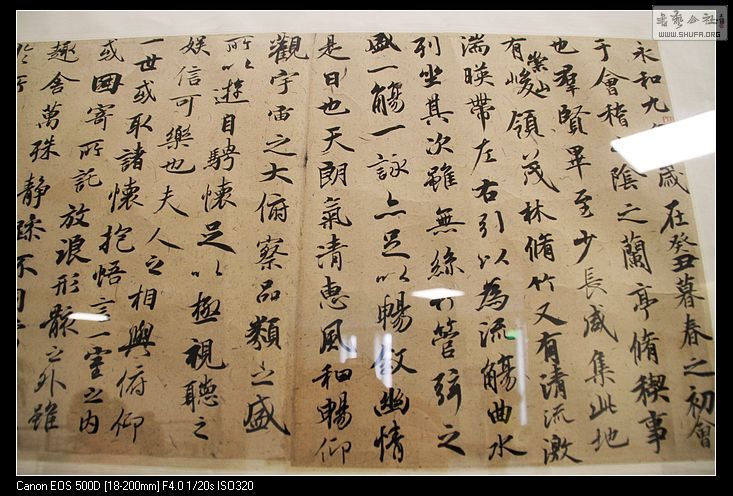 書藝公社
WWW.SHUFA.ORG
永和九歲在癸丑暮春之初會
于會稽陰之蘭亭脩稧事
也羣賢畢至少長咸集此地
有崇山峻領茂林脩竹又有清流激
湍暎帶左右引以為流觴曲水
列坐其次雖無絲竹管弦之
盛一觴一詠亦足以暢敘幽情
是日也天朗氣清惠風和暢仰
觀宇宙之大俯察品類之盛
所以遊目騁懷足以極視聽之
娛信可樂也夫人之相與俯仰
一世或取諸懷抱悟言一室之内
或因寄所託放浪形骸之外雖
趣舍萬殊靜躁不同
Canon EOS 500D [18-200mm] F4.0 1/20s ISO320